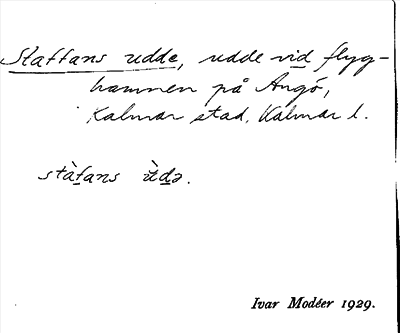 Staffans udde, udde vid flyg-
hamnen på Angö,
Kalmar stad, Kalmar l.
stàfans ùdə.
Ivar Modéer 1929.